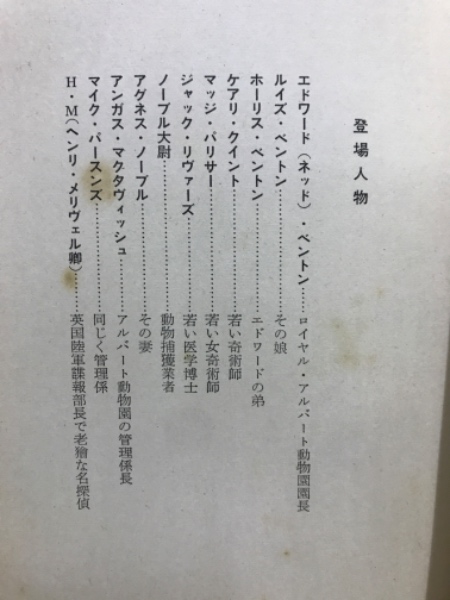 登場人物
エドワード（ネッド）・ベントン……ロイヤル・アルバート動物園園長
ルイズ・ベントン……………………その娘
ホーリス・ベントン…………………エドワードの弟
ケアリ・クイント……………………若い奇術師
マッジ・パリサー……………………若い女奇術師
ジャック・リヴァーズ………………若い医学博士
ノーブル大尉…………………………動物捕獲業者
アグネス・ノーブル…………………その妻
アンガス・マクタヴィッシュ………アルバート動物園の管理係長
マイク・パースンズ…………………同じく管理係
H・M（ヘンリ・メリヴェル卿）……英国陸軍諜報部長で老獪な名探偵